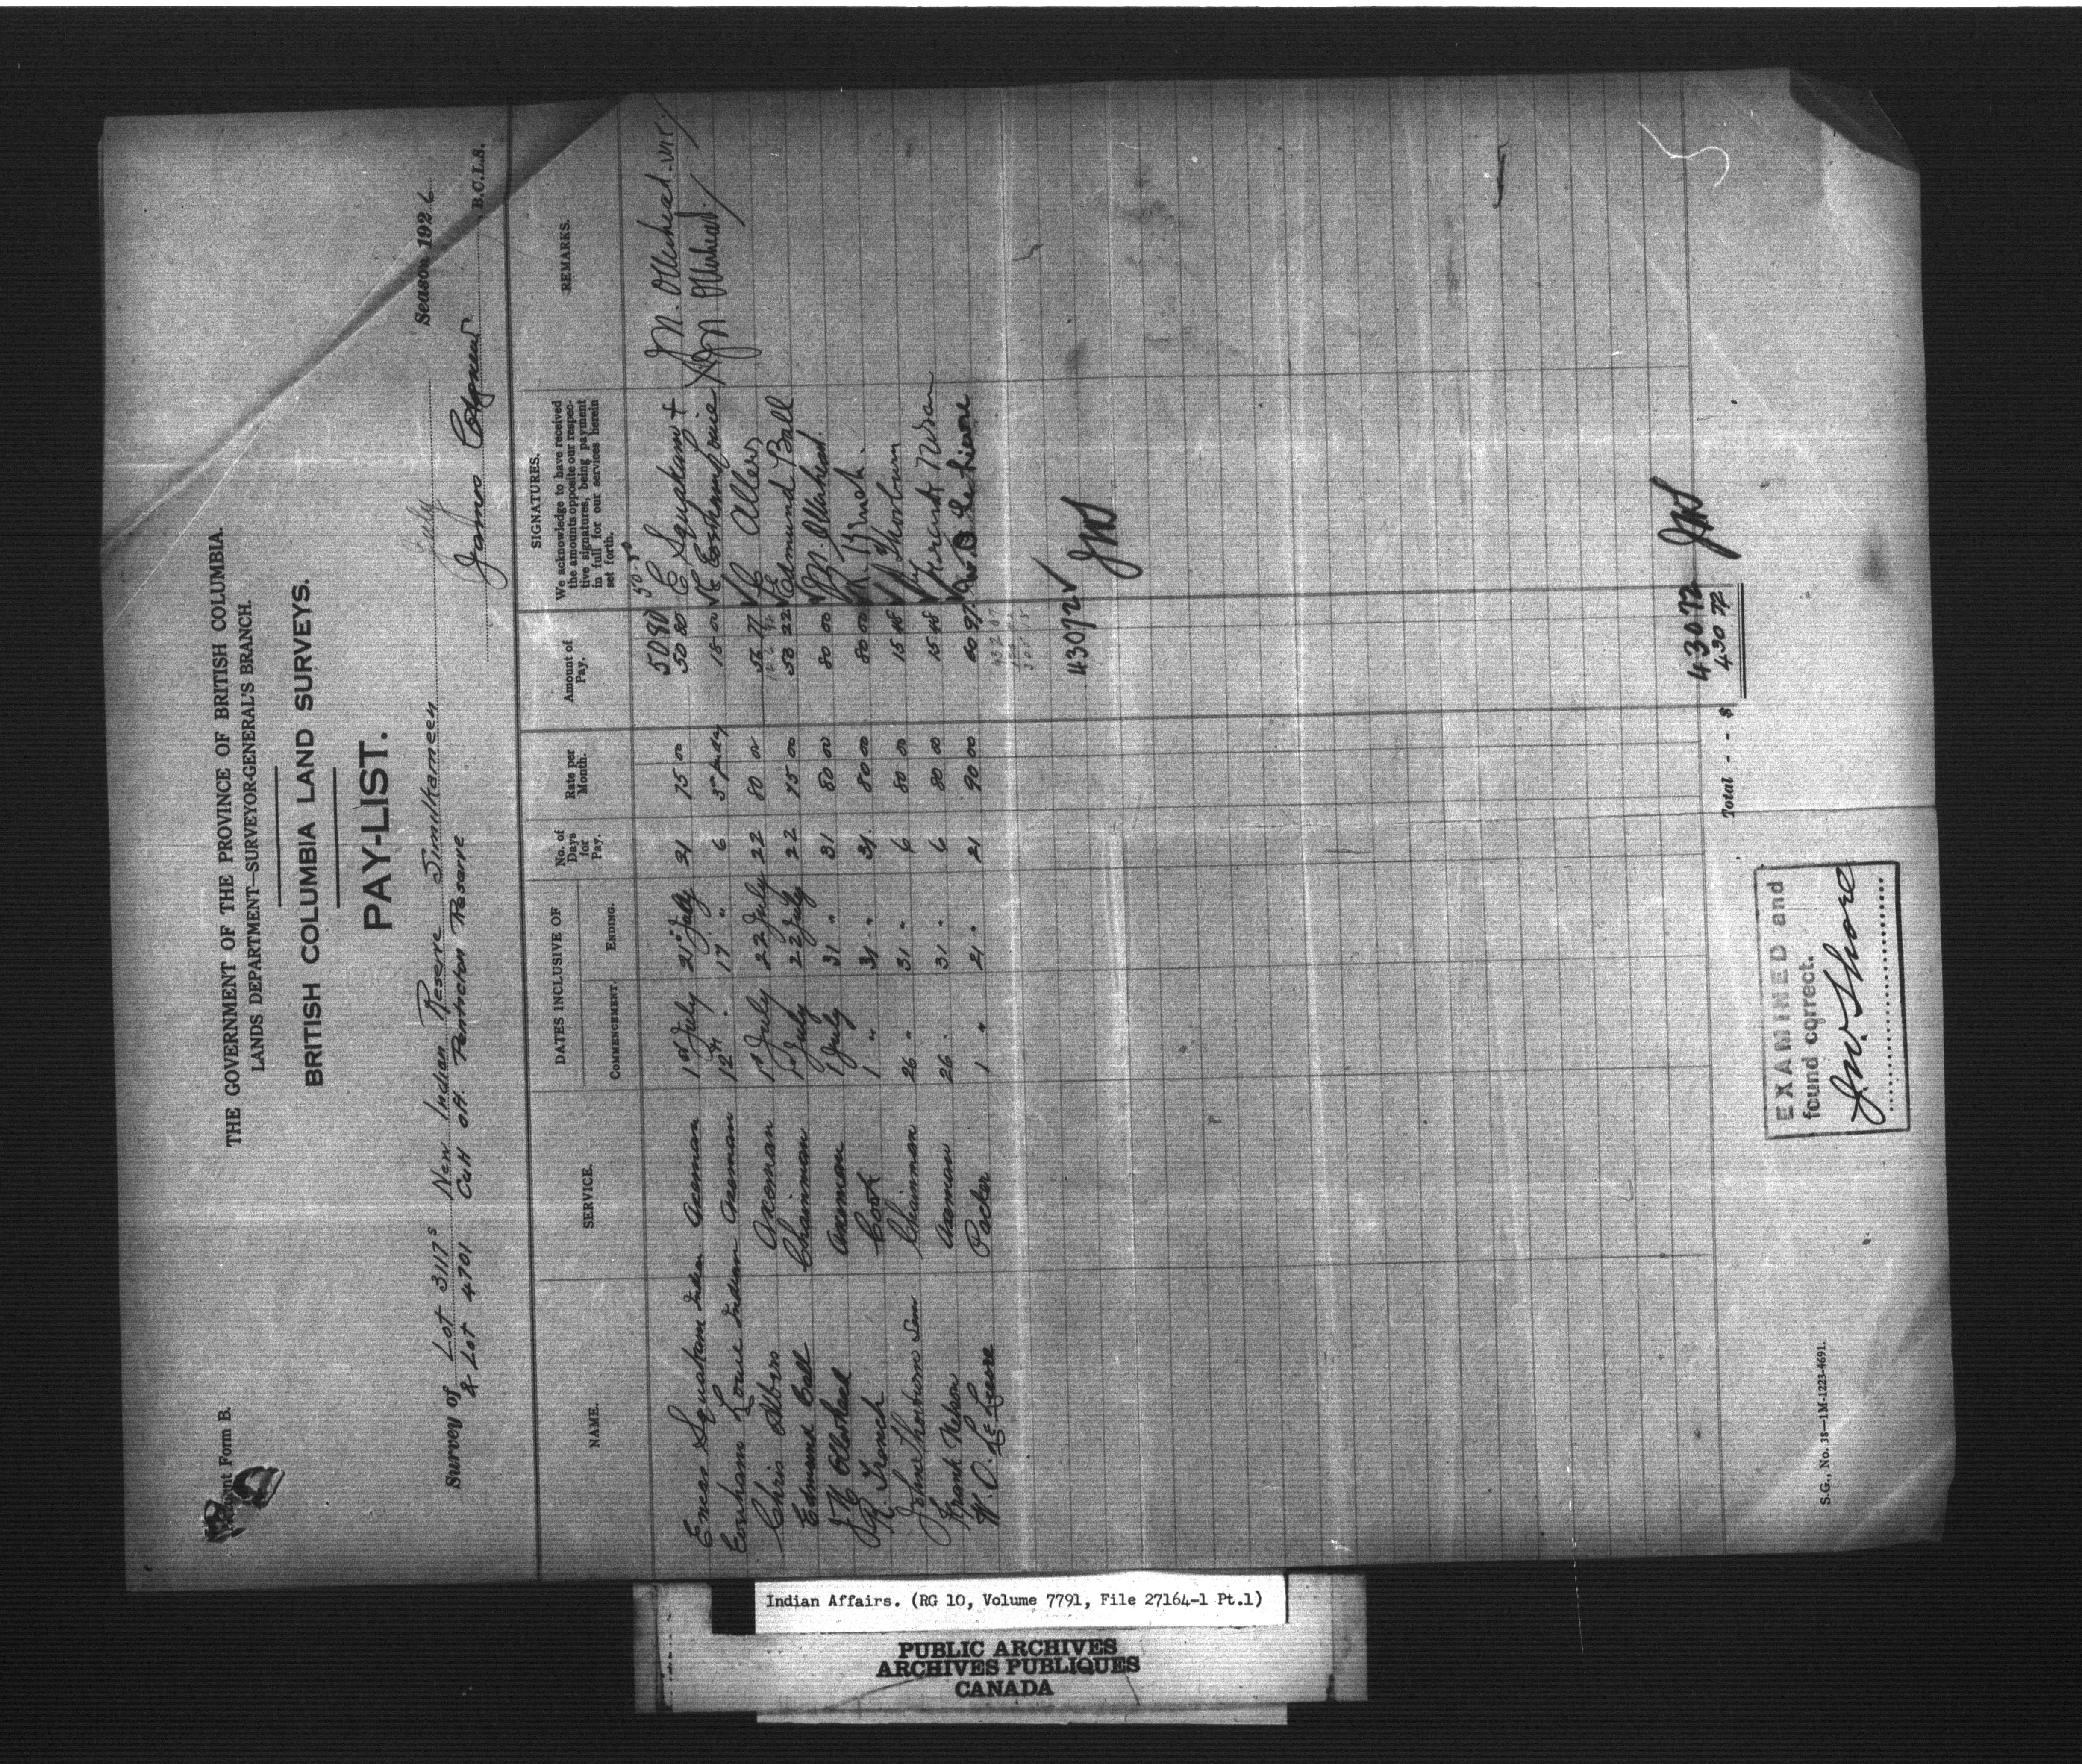 Form B.
THE GOVERNMENT OF THE PROVINCE OF BRITISH COLUMBIA.
LANDS DEPARTMENT—SURVEYOR-GENERAL'S BRANCH.
BRITISH COLUMBIA LAND SURVEYS.
PAY-LIST.
Survey of Lot 3117s New Indian Reserve Similkameen July Season 1926
& Lot 4701 Cut off Penticton Reserve James , B.C.L.S.
NAME. SERVICE. DATES INCLUSIVE OF COMMENCEMENT. ENDING. No. of Days for Pay. Rate per Month. Amount of Pay. SIGNATURES. REMARKS.
We acknowledge to have received
the amounts opposite our respec-
tive signatures, being payment
in full for our services herein
set forth.
50 80 50-80
Eneas Indian Axeman 1st July 21st July 21 75 00 50 80 E + J M. Ollerhead wit.
Louie Indian Axeman 12th " 17 " 6 3 00 per day 18 00 Louie J M Ollerhead
Chris Axeman 1st July 22 July 22 80 00 56 77 C Allers
Edmund Ball Chainman 1st July 22 July 22 75 00 53 22 Edmund Ball
J M Ollerhead Axeman 1 July 31 " 31 80 00 80 00 J M Ollerhead.
R. French Cook 1 " 31 " 31 80 00 80 00 R. French.
John Thorburn Chainman 26 " 31 " 6 80 00 15 48 J Thorburn
Frank Nelson Axeman 26 " 31 " 6 80 00 15 48 Frank Nelson
W. O. Packer 1 " 21 " 21 90 00 60 97
430 72 √ JWS
430 72 JWS
Total - - $ 430 72
EXAMINED and
found correct.
J.W. Shore
S.G., No. 38—1M-1223-4691.
Indian Affairs. (RG 10, Volume 7791, File 27164-1 Pt.1)
PUBLIC ARCHIVES
ARCHIVES PUBLIQUES
CANADA